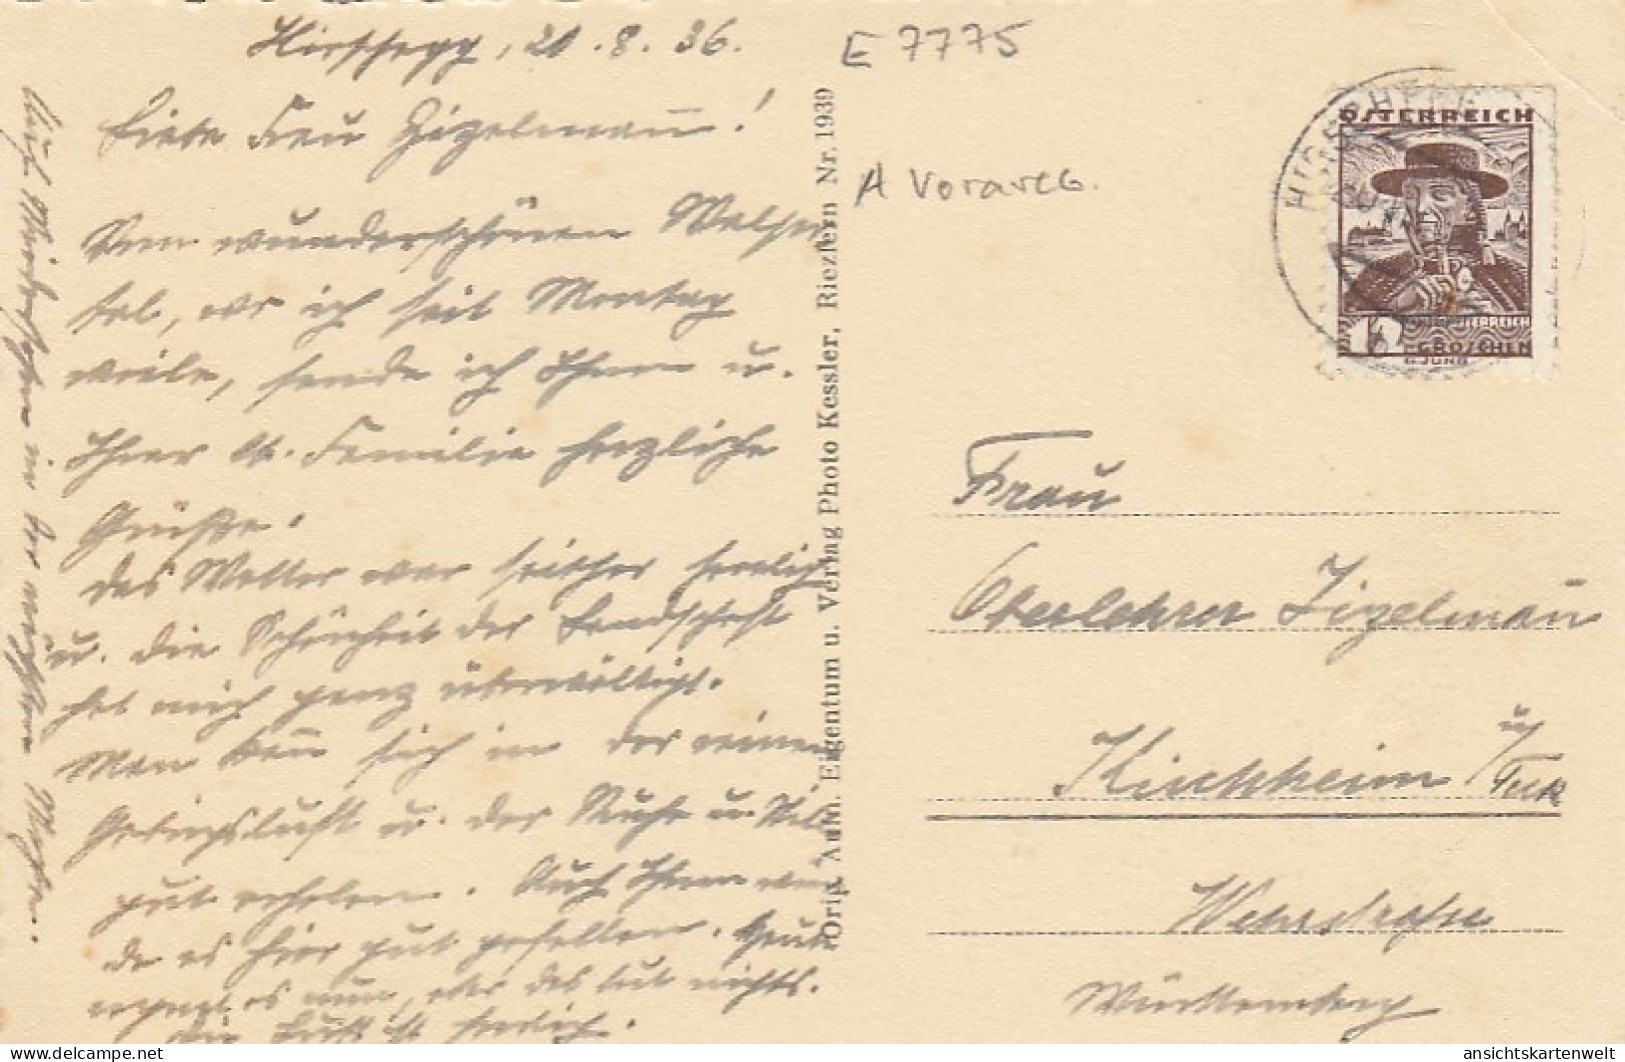 Hirschegg, 20.8.36.
Liebe Frau Zizelmann!
Vom wunderschönen Walser
tal, wo ich seit Montag
weile, sende ich Ihnen u.
Ihrer lb. Familie herzliche
Grüße.
Das Wetter war seither herrlich
u. die Schönheit der Landschaft
hat mich ganz überwältigt.
Man kann sich in der reinen
Gebirgsluft u. der Ruhe u. Stille
gut erholen. Auch Ihnen wür
de es hier gut gefallen. Heute
regnet es nun, aber das tut nichts.
Die Luft ist herrlich.
in der nächsten
Orig. Aufn. Eigentum u. Verlag Photo Kessler, Riezlern Nr. 1939
E 7775
A Vorarlb.
HIRSCHEGG
ÖSTERREICH
ÖSTERREICH
GROSCHEN
G. JUNG
Frau
Oberlehrer Zizelmann
Kirchheim u/Teck
Württemberg
delcampe.net
ansichtskartenwelt